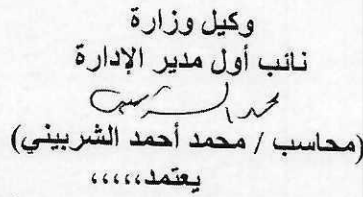 وكيل وزارة
نائب أول مدير الإدارة
محمد الشربيني
(محاسب / محمد أحمد الشربيني)
يعتمد،،،،،